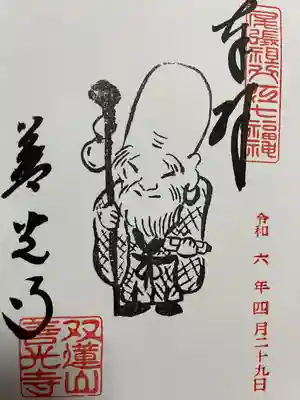 尾張祖父江七福神
奉拝
令和六年四月二十九日
善光寺
双蓮山
善光寺